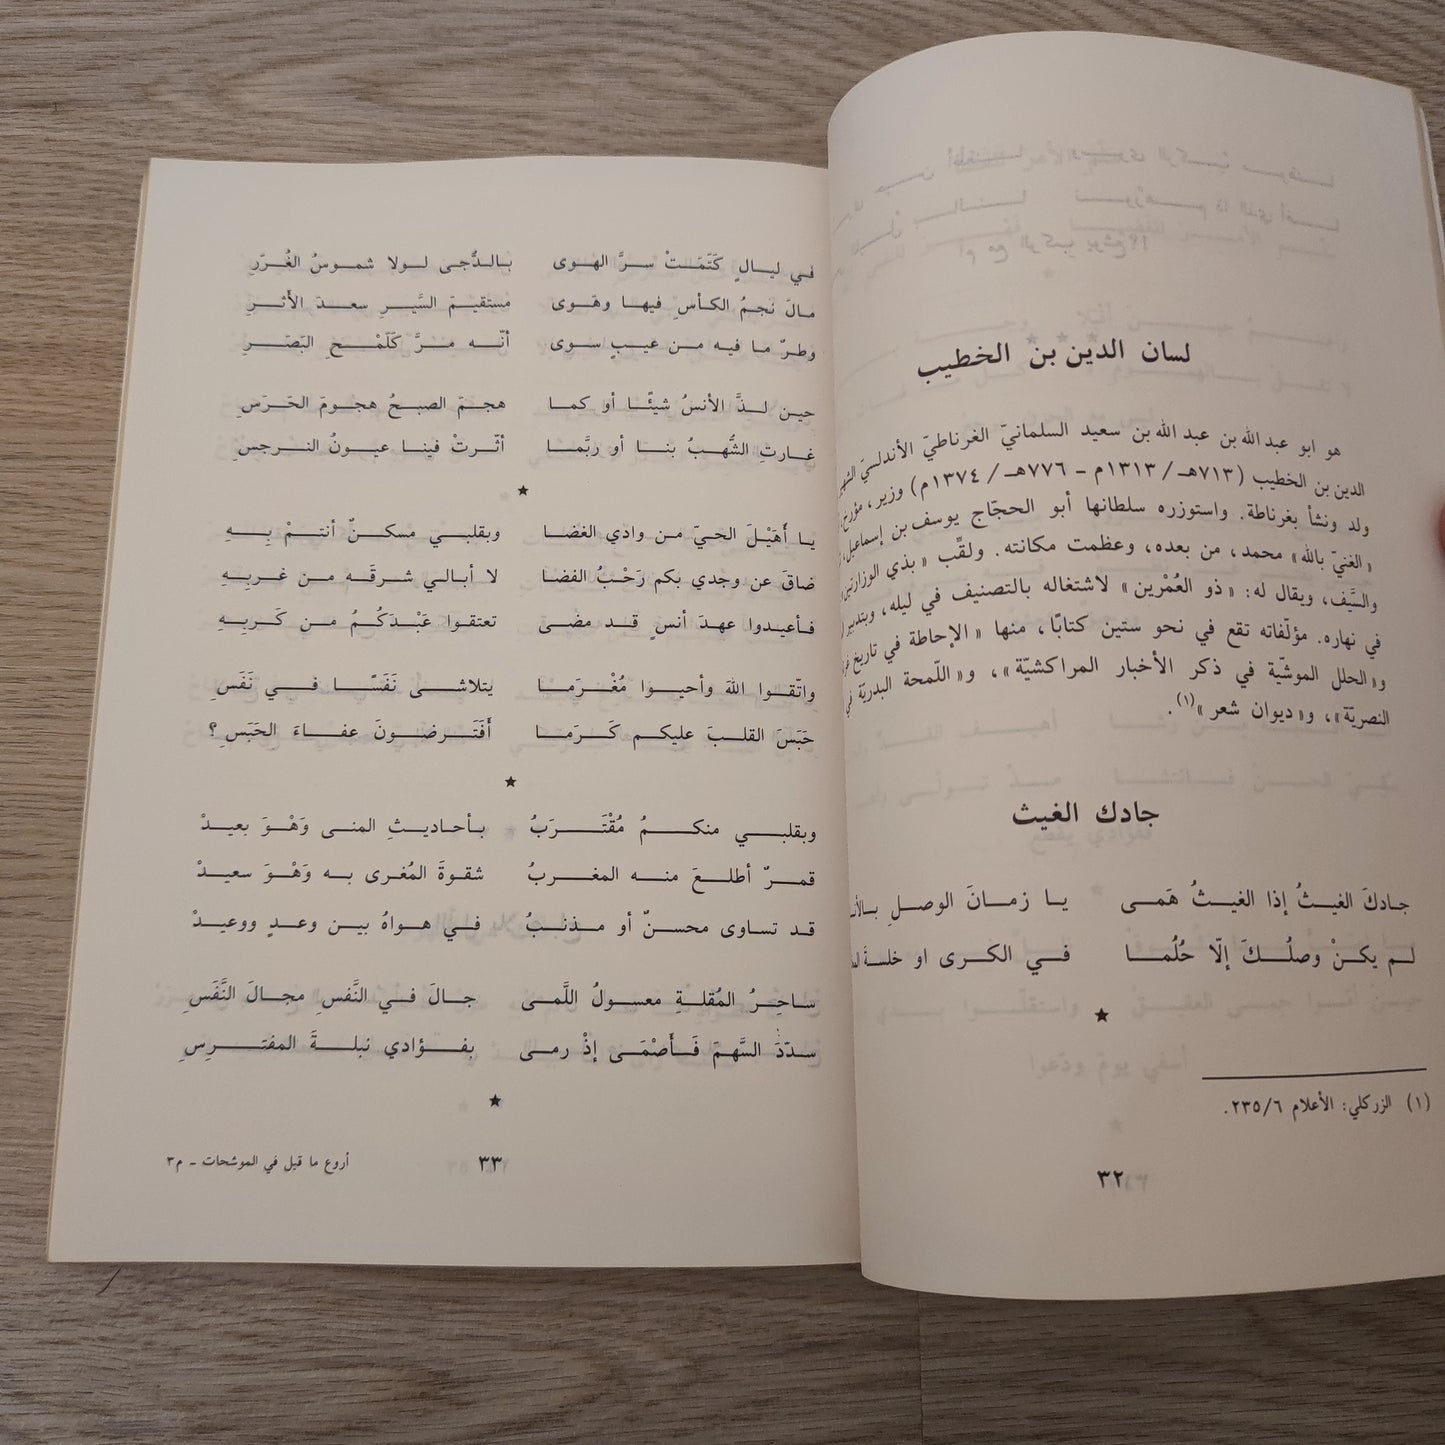 لسان الدين بن الخطيب
هو ابو عبد الله بن عبد الله بن سعيد السلمانيّ الغرناطيّ الأندلسيّ
الدين بن الخطيب (٧١٣هـ/ ١٣١٣م - ٧٧٦هـ/ ١٣٧٤م) وزير، مؤرخ
ولد ونشأ بغرناطة. واستوزره سلطانها أبو الحجّاج يوسف بن إسماعيل،
«الغنيّ بالله» محمد، من بعده، وعظمت مكانته. ولقّب «بذي الوزارتين
والسَّيف، ويقال له: «ذو العُمْرين» لاشتغاله بالتصنيف في ليله، وبتدبير
في نهاره. مؤلّفاته تقع في نحو ستين كتابًا، منها «الإحاطة في تاريخ
و«الحلل الموشيّة في ذكر الأخبار المراكشيّة»، و«اللّمحة البدريّة في
النصريّة»، و«ديوان شعر»(١).
جادك الغيث
جادكَ الغيثُ إذا الغيثُ هَمَى يا زمانَ الوصلِ
لم يكنْ وصلُكَ إلّا حُلُما في الكرى او خلسةَ
★
(١) الزركلي: الأعلام ٢٣٥/٦.
٣٢
في ليالٍ كَتَمَتْ سرَّ الهوى بالدُّجى لولا شموسُ الغُرَرِ
مالَ نجمُ الكأسِ فيها وهَوى مستقيمَ السَّيرِ سعدَ الأثرِ
وطرٌ ما فيه من عيبٍ سوى أنّه مرَّ كَلَمْحِ البَصَرِ
حين لذَّ الأنسُ شيئًا أو كما هجمَ الصبحُ هجومَ الحَرَسِ
غارتِ الشُّهبُ بنا أو ربَّما أثّرتْ فينا عيونُ النرجسِ
★
يا أُهَيْلَ الحيّ من وادي الغضا وبقلبي مسكنٌ أنتمْ بِهِ
ضاقَ عن وجدي بكم رَحْبُ الفضا لا أبالي شرقَه من غربِهِ
فأعيدوا عهدَ أنسٍ قد مضى تعتقوا عَبْدَكُمُ من كَربِهِ
واتّقوا اللهَ وأحيوا مُغْرَما يتلاشى نَفَسًا في نَفَسِ
حَبَسَ القلبَ عليكم كَرَما أَفَتَرضونَ عفاءَ الحَبَسِ؟
★
وبقلبي منكمُ مُقْتَرَبُ بأحاديثِ المنى وَهْوَ بعيدْ
قمرٌ أطلعَ منه المغربُ شقوةَ المُغرى به وَهْوَ سعيدْ
قد تساوى محسنٌ أو مذنبُ في هواهُ بين وعدٍ ووعيدْ
ساحِرُ المُقلةِ معسولُ اللَّمى جالَ في النَّفسِ مجالَ النَّفَسِ
سدّدَ السَّهمَ فَأَصْمَى إذْ رمى بفؤادي نبلةَ المفترِسِ
★
٣٣
أروع ما قيل في الموشحات - م٣